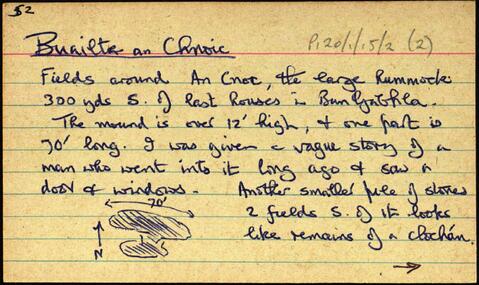 52
Buailte an Chnoic
P120/1/15/2 (2)
Fields around An Cnoc, the large hummock
300 yds S. of last houses in Bun Gabhla.
The mound is over 12' high, & one part is
70' long. I was given a vague story of a
man who went into it long ago & saw a
door & windows. Another smaller pile of stones
70'
2 fields S. of it looks
like remains of a clochán.
N